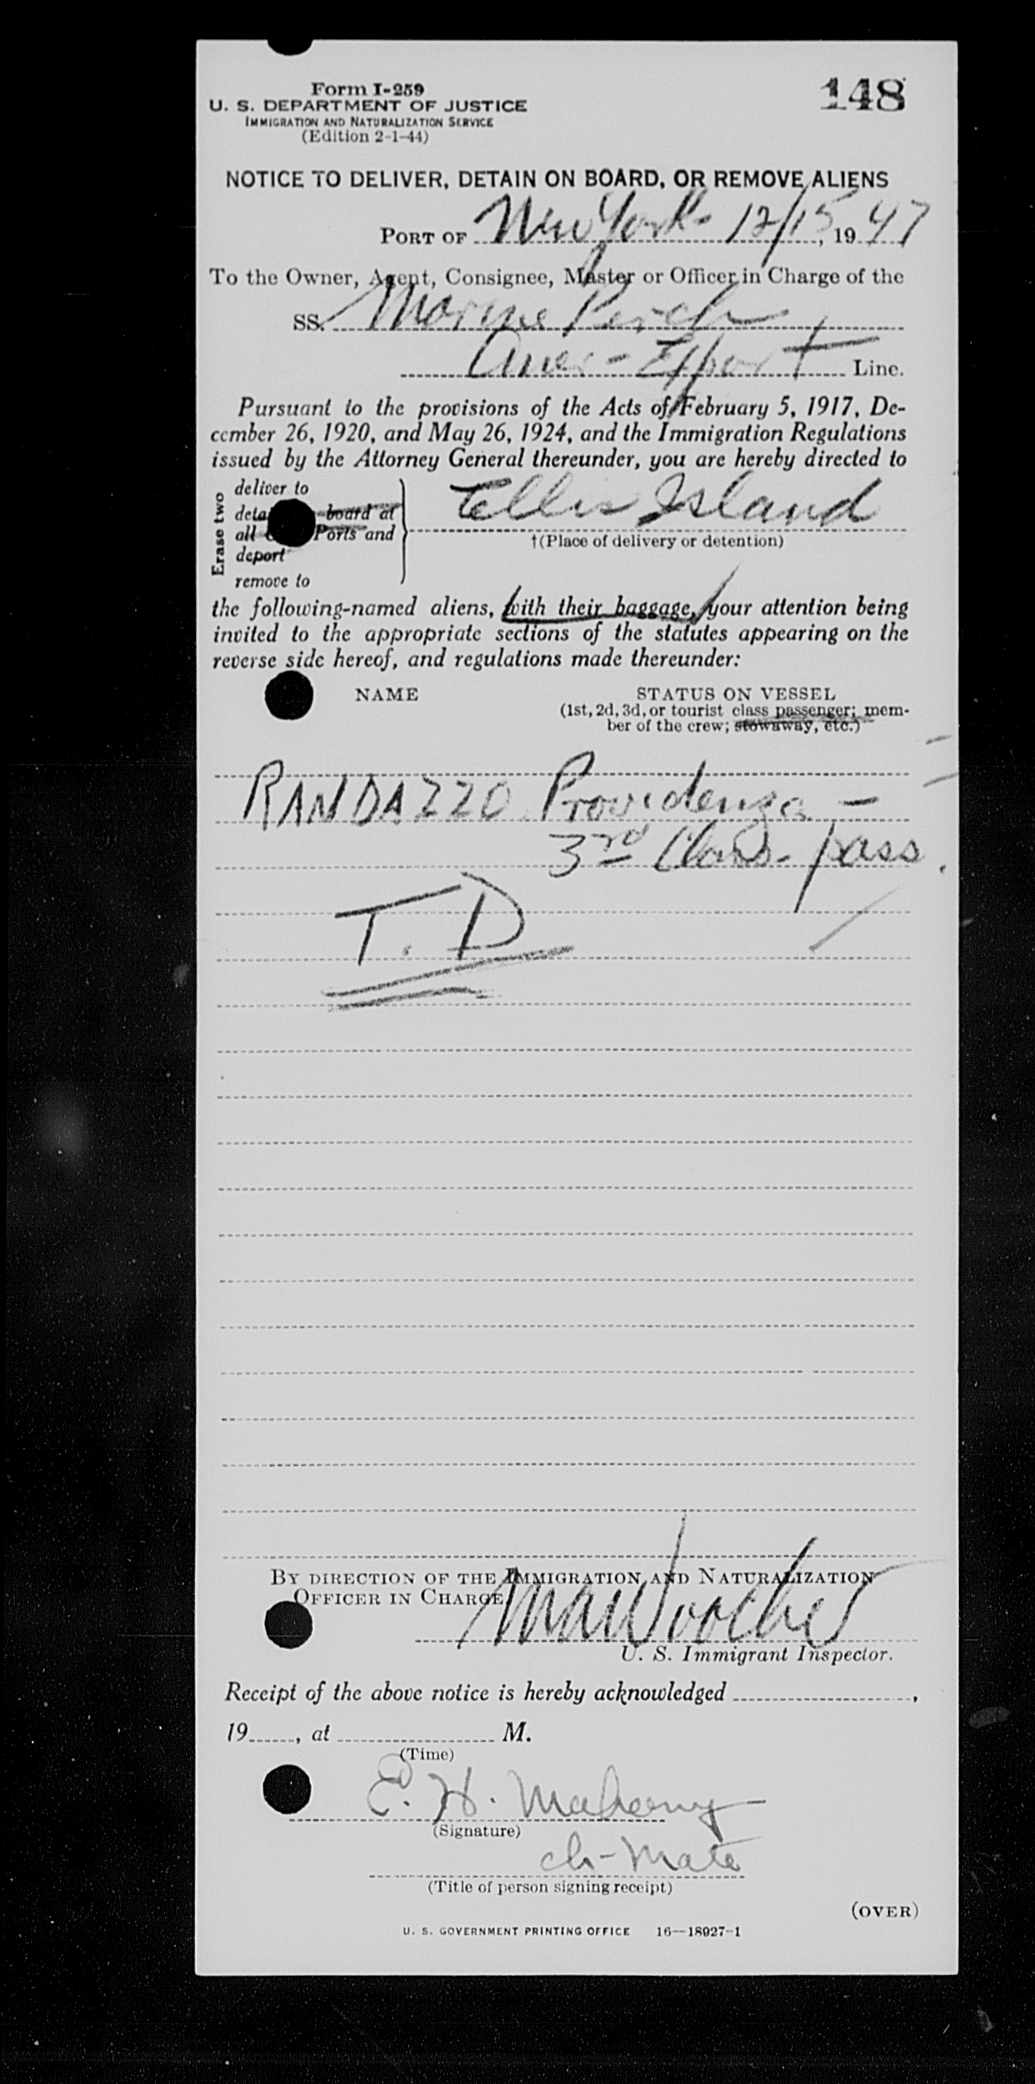 Form I-259
148
U. S. DEPARTMENT OF JUSTICE
IMMIGRATION AND NATURALIZATION SERVICE
(Edition 2-1-44)
NOTICE TO DELIVER, DETAIN ON BOARD, OR REMOVE ALIENS
PORT OF New York 12/15, 1947
To the Owner, Agent, Consignee, Master or Officer in Charge of the
SS. Marine Perch
Amer-Export Line.
Pursuant to the provisions of the Acts of February 5, 1917, De-
cember 26, 1920, and May 26, 1924, and the Immigration Regulations
issued by the Attorney General thereunder, you are hereby directed to
Erase two
deliver to
board at
all Ports and
deport
remove to
Ellis Island
†(Place of delivery or detention)
the following-named aliens, with their baggage, your attention being
invited to the appropriate sections of the statutes appearing on the
reverse side hereof, and regulations made thereunder:
NAME STATUS ON VESSEL
(1st, 2d, 3d, or tourist class passenger; mem-
ber of the crew; stowaway, etc.)
RANDAZZO Providenza -
3rd Class pass.
T. D
BY DIRECTION OF THE IMMIGRATION AND NATURALIZATION
OFFICER IN CHARGE
U. S. Immigrant Inspector.
Receipt of the above notice is hereby acknowledged ,
19 , at M.
(Time)
E. H. Mahony
(Signature)
ch-Mate
(Title of person signing receipt)
(OVER)
U. S. GOVERNMENT PRINTING OFFICE 16—18927-1